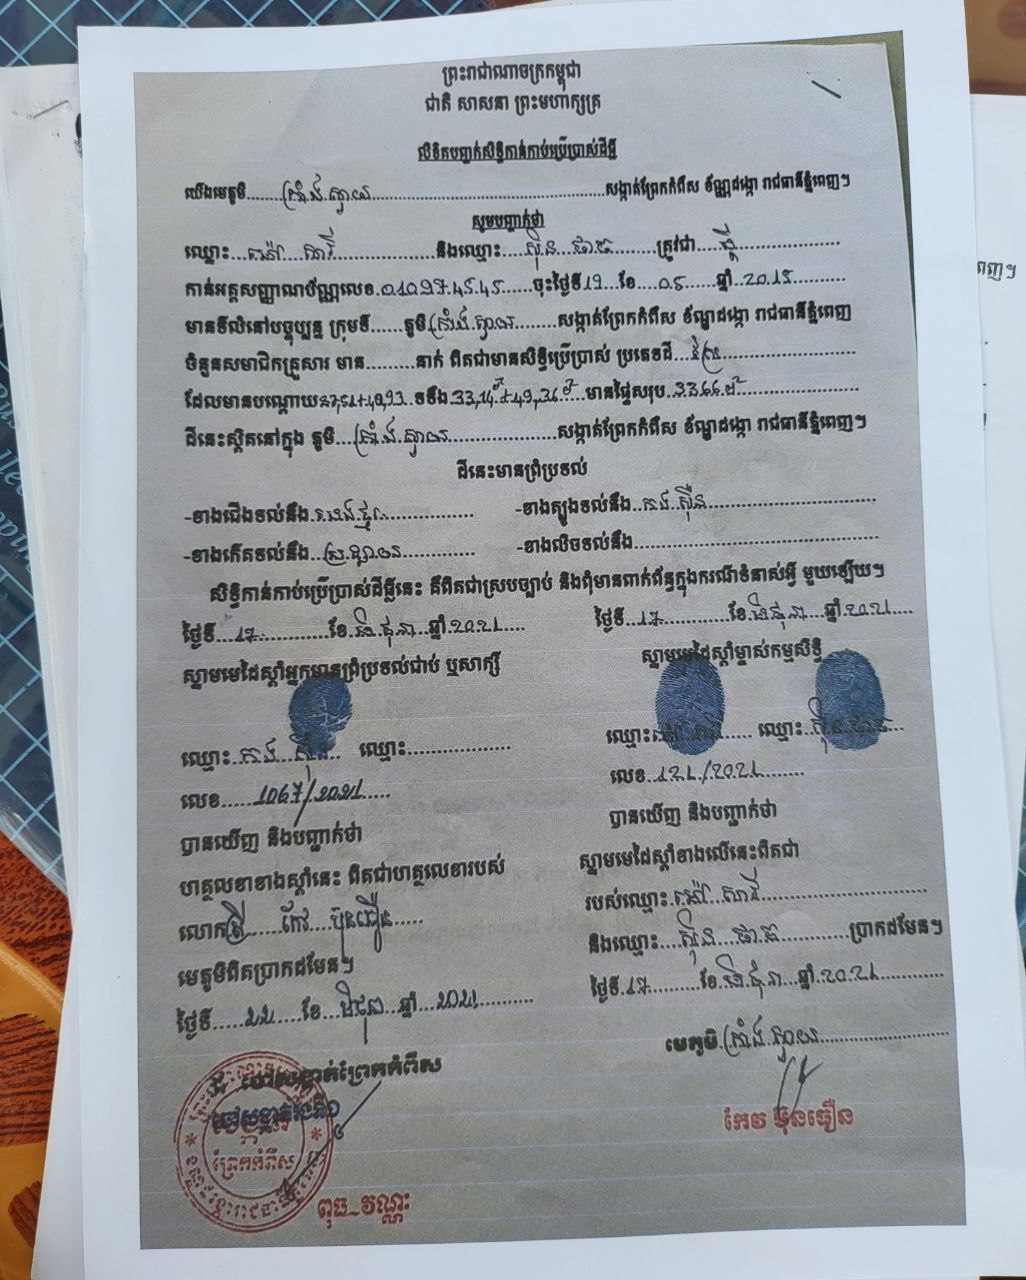 ព្រះរាជាណាចក្រកម្ពុជា
ជាតិ សាសនា ព្រះមហាក្សត្រ
លិខិតបញ្ជាក់សិទ្ធិកាន់កាប់ប្រើប្រាស់ដីធ្លី
យើងមេភូមិ........ក្រាំង.ស្វាយ........សង្កាត់ព្រែកកំពឹស ខ័ណ្ឌដង្កោ រាជធានីភ្នំពេញ។
សូមបញ្ជាក់ថា
ឈ្មោះ...........និងឈ្មោះ....ស៊ិន........ត្រូវជា....ប្តី........
កាន់អត្តសញ្ញាណប័ណ្ណលេខ.010975545......ចុះថ្ងៃទី19...ខែ....05......ឆ្នាំ..2015........
មានទីលំនៅបច្ចុប្បន្ន ក្រុមទី......ភូមិក្រាំង.ស្វាយ........សង្កាត់ព្រែកកំពឹស ខ័ណ្ឌដង្កោ រាជធានីភ្នំពេញ
ចំនួនសមាជិកគ្រួសារ មាន.........នាក់ ពិតជាមានសិទ្ធិប្រើប្រាស់ ប្រភេទដី...ស្រែ........
ដែលមានបណ្តោយ......ទទឹង.33,14ម+49,36ម.....មានផ្ទៃសរុប..3366ម²........
ដីនេះស្ថិតនៅក្នុង ភូមិ...ក្រាំង.ស្វាយ........សង្កាត់ព្រែកកំពឹស ខ័ណ្ឌដង្កោ រាជធានីភ្នំពេញ។
ដីនេះមានព្រំប្រទល់
-ខាងជើងទល់នឹង........ -ខាងត្បូងទល់នឹង..កង.ស៊ឺន........
-ខាងកើតទល់នឹង........ -ខាងលិចទល់នឹង........
សិទ្ធិកាន់កាប់ប្រើប្រាស់ដីធ្លីនេះ គឺពិតជាស្របច្បាប់ និងពុំមានពាក់ព័ន្ធក្នុងករណីទំនាស់អ្វី មួយឡើយ។
ថ្ងៃទី...17........ខែ.មិថុនា...ឆ្នាំ.2021..... ថ្ងៃទី...17........ខែ.មិថុនា...ឆ្នាំ.2021....
ស្នាមមេដៃស្តាំអ្នកមានព្រំប្រទល់ជាប់ ឬសាក្សី ស្នាមមេដៃស្តាំម្ចាស់កម្មសិទ្ធិ
ឈ្មោះ..កង..ស៊ឺន.. ឈ្មោះ........ ឈ្មោះ........ ឈ្មោះ...ស៊ិន........
លេខ.....1067/2021..... លេខ..121./2021........
បានឃើញ និងបញ្ជាក់ថា បានឃើញ និងបញ្ជាក់ថា
ហត្ថលេខាខាងស្តាំនេះ ពិតជាហត្ថលេខារបស់ ស្នាមមេដៃស្តាំខាងលើនេះពិតជា
លោកស្រី......កែវ...ប៊ុនធឿន..... របស់ឈ្មោះ........
មេភូមិពិតប្រាកដមែន។ និងឈ្មោះ....ស៊ិន........ប្រាកដមែន។
ថ្ងៃទី......22.....ខែ...មិថុនា...ឆ្នាំ....2021........ ថ្ងៃទី.17........ខែ..មិថុនា...ឆ្នាំ..2021........
ចៅសង្កាត់ព្រែកកំពឹស មេភូមិ.ក្រាំង.ស្វាយ........
ព្រែកកំពឹស
កែវ ប៊ុនធឿន
ពុធ_វណ្ណះ
ពេញ។